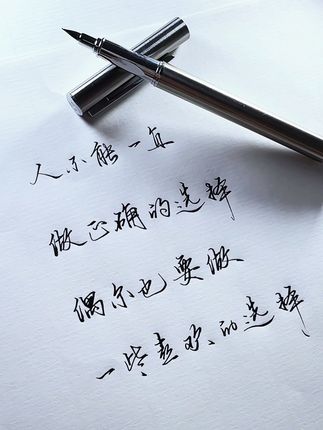 人不能一直
做正确的选择
偶尔也要做
一些喜欢的选择